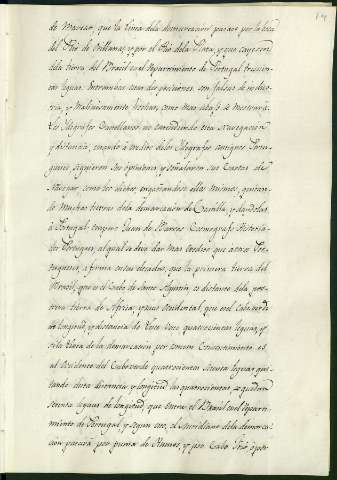 de Marear, que la linea dela demarcacion pasase por la boca
del Rio de Orellana, y por el Rio dela Plata, y que cayesen
dela tierra del Brasil en el repartimiento de Portugal
leguas
y Maliciosamente hechas, como mas abajo se mostrara.
Los Geografos Castellanos no entendiendo esta Navegacion
y distancia, en quanto a medir delos Geografos antiguos Portu-
gueses siguieron su opinion, y señalaron sus Cartas de
Navegar, como los dichos, engañandose ellos mismos, quitan-
do muchas tierras dela demarcacion de Castilla, y dandolas
a Portugal, aunque Juan de Barros Cosmografo Historia-
dor Portugues, al qual se deve dar mas credito que a otros Por-
tugueses, afirma en sus decadas, que la primera tierra del
Brasil, que es el Cabo de Santo Agustin, es distante dela pos-
trera tierra de Africa, y mas Occidental, que es el Cabo verde
de longitud, y distancia de leguas, y
si la linea de la demarcacion por comun Consentimiento es
al Occidente del Cabo verde quatrocientas setenta leguas qui-
tando desta distancia y longitud las quatrocientas quedan
setenta leguas de longitud, que entra el Brasil en el repar-
timiento de Portugal, y segun esto, el Meridiano dela demarca-
cion pasara por punta de Humos, y por Cabo Frio o por